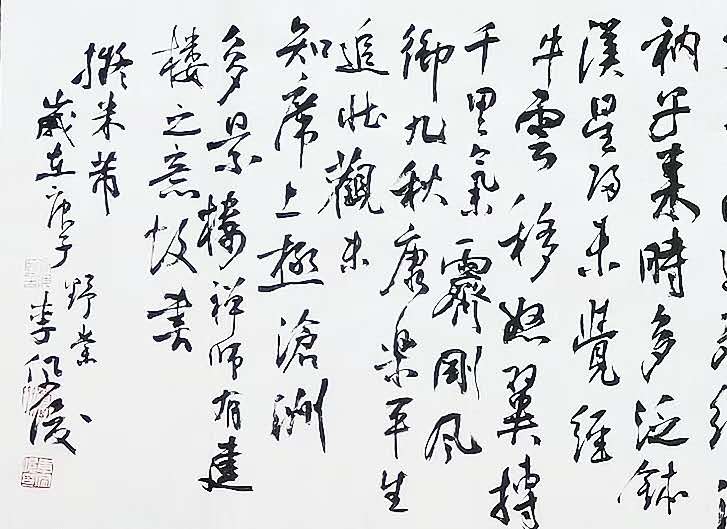 衲子来時多泛鉢
漢星歸未覺經
牛雲移怒翼摶
千里氣霽剛風
御九秋康樂平生
追壯觀未
知席上極滄洲
多景樓禪師有建
樓之意故書
擬米芾
歲在庚子
李